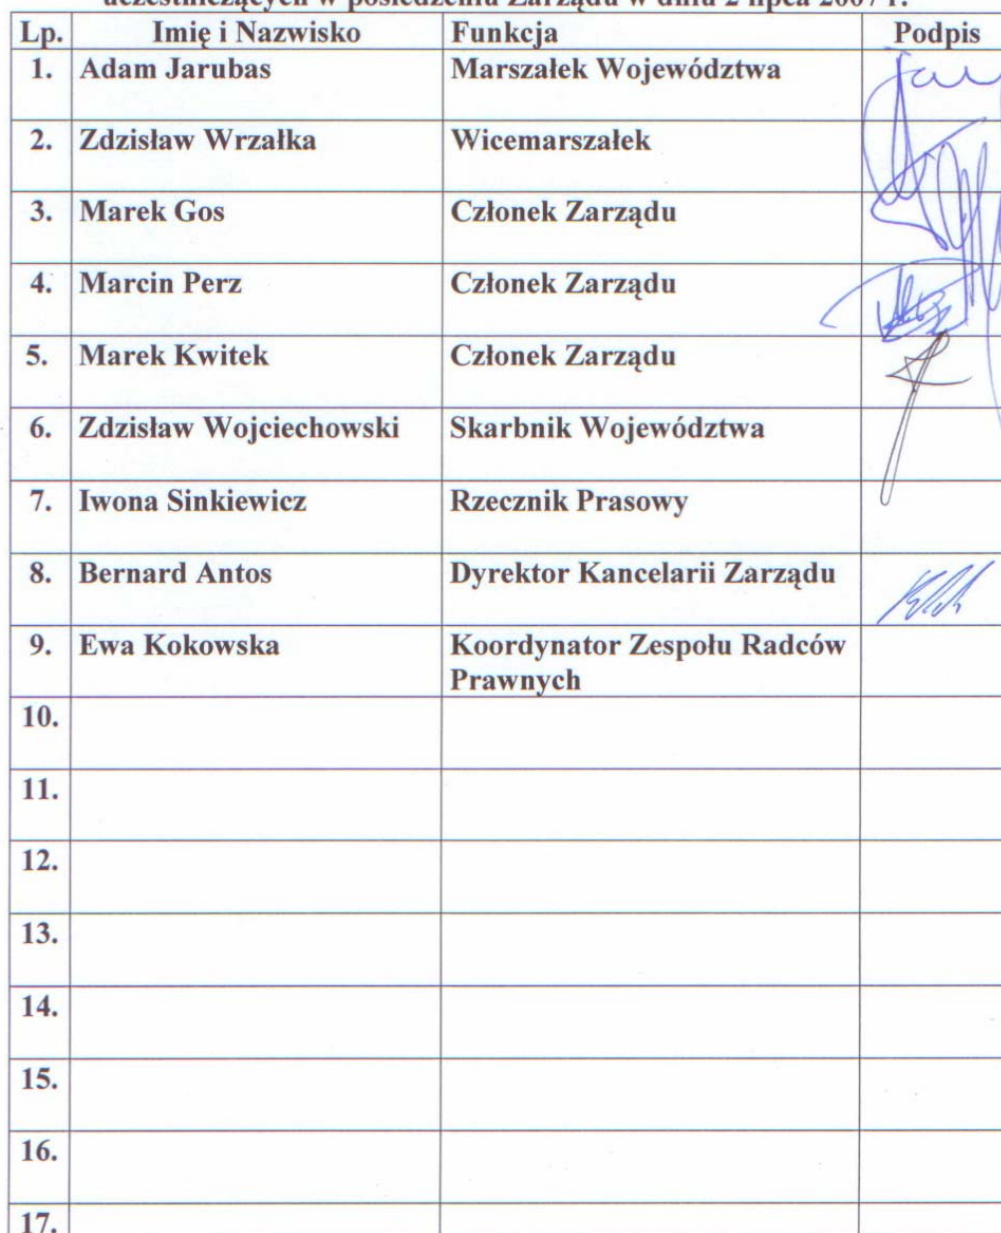 uczestniczących w posiedzeniu Zarządu w dniu 2 lipca 2007 r.
Lp. Imię i Nazwisko Funkcja Podpis
1. Adam Jarubas Marszałek Województwa
2. Zdzisław Wrzałka Wicemarszałek
3. Marek Gos Członek Zarządu
4. Marcin Perz Członek Zarządu
5. Marek Kwitek Członek Zarządu
6. Zdzisław Wojciechowski Skarbnik Województwa
7. Iwona Sinkiewicz Rzecznik Prasowy
8. Bernard Antos Dyrektor Kancelarii Zarządu
9. Ewa Kokowska Koordynator Zespołu Radców
Prawnych
10.
11.
12.
13.
14.
15.
16.
17.